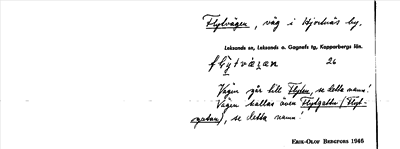 Flytvägen, väg i Hjortnäs by.
Leksands sn, Leksands o. Gagnefs tg, Kopparbergs län.
26
Vägen går till Flyten, se detta namn!
Vägen kallas även Flytgattu (Flyt-
gatan), se detta namn!
ERIK-OLOF BERGFORS 1946